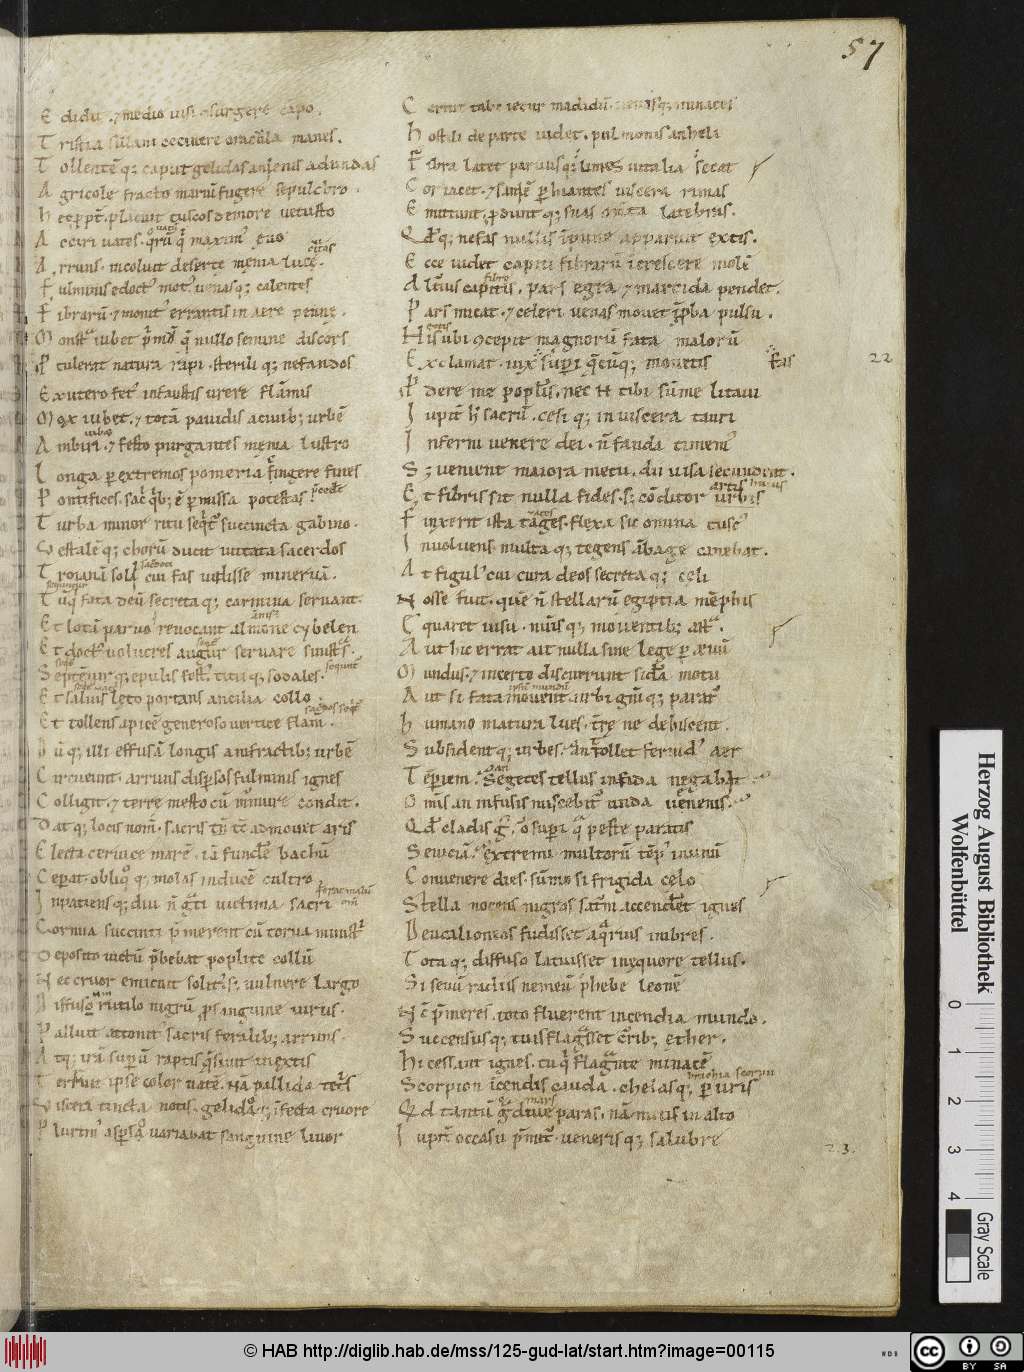 57
E didit. & medio uisi surgere capo.
T ristia sullani cecinere oracula manes.
T ollentēq; caput gelidas anienis ad undas
A gricole fracto mariū fugere sepulchro.
H ec ppt̄ placuit tuscos de more uetusto
A cciri uates. quorū q̄ maxim' euo
A rruns. incoluit deserte męnia luce.
F ulminis edoct' mot' uenasq; calentes
F ibrarū & monit' errantis in aere penne.
M onstra iubet p̄mū q̄ nullo semine discors
P tulerat natura rapi. sterili q; nefandos
E x utero fet' infaustis urere flāmis
M ox iubet. & totā pauidis a ciuib; urbē
A mbiri. & festo purgantes męnia lustro
L onga p extremos pomeria cingere fines
P ontifices. sacri qb; ē pmissa potestas.
T urba minor ritu seqt' succincta gabino.
V estalēq; chorū ducit uittata sacerdos
T roianā soli cui fas uidisse mineruā.
T ū q fata deū secreta q; carmina seruant.
E t lotā paruo reuocant almone cybelen
E t doct' uolucres augur seruare sinistras.
S eptēuir q; epulis fest'. titii q; sodales.
E t salius lęto portans ancilia collo.
E t tollens apicē generoso uertice flam.
D ū q; illi effusā longis anfractib; urbē
C ircueunt. arruns dispsos fulminis ignes
C olligit. & terre mesto cū murmure condit.
D at q; locis nom. sacris tūc admouet aris
E lecta ceruice marē. iā fundere bachū
C eperat. obliquo q; molas inducē cultro
I npatiens q; diu n̄ grati uictima sacri
C ornua succincti p̄merent cū torua ministri
D eposito uictū p̄bebat poplite collū
N ec cruor emicuit solitus. s; uulnere largo
D iffusū rutilo nigrū p sanguine uirus.
P alluit attonit' sacris feralib; arruns.
A tq; irā supū raptis quesiuit in extis
T erruit ipse color uatē. nā pallida tetris
V iscera tincta notis. gelido q; infecta cruore
P lurim' aspso uariabat sanguine liuor
C ernit tabe iecur madidū. uenasq; minaces
H ostili de parte uidet. pulmonis anheli
F ibra latet paruusq; limes uitalia secat
C or iacet. & saniē p hiantes uiscera rimas
E mittunt. pdunt q; suas omta latebras.
Q d q; nefas nullis inpune apparuit extis.
E cce uidet capiti fibrarū increscere molē
A lt'ius capitis. pars egra & marcida pendet.
P ars micat. & celeri uenas mouet inproba pulsu.
H is ubi cōcepit magnorū fata malorū
E xclamat. uix supi quęcūq; mouetis fas 22
P dere me poplis. nec N tibi sūme litaui
I upit' h sacrū. cesi q; in uiscera tauri
I nferni uenere dei. n̄ fanda timem'
S ; uenient maiora metu. dii uisa secundent.
E t fibris sit nulla fides. s; cōditor artis
F inxerit ista tages. flexa sic omina tusc'
I nuoluens multa q; tegens ābage canebat.
A t figul' cui cura deos secreta q; celi
N osse fuit. quē n̄ stellarū egiptia mēphis
E quaret uisu. numisq; mouentib; astra.
A ut hic errat ait nulla sine lege p euū
M undus. & incerto discurrunt sidera motu
A ut si fata mouent. urbi genti q; parat'
H umano matura lues. terre ne dehiscent.
S ubsident q; urbes. an tollet feruid' aer
T epiem. Segetes tellus infida negabit
O mnis an infusis miscebit' unda uenenis.
Q d cladis g. o supi q peste paratis
S euiciā. extremi multorū temp' in unū
C onuenere dies. sūmo si frigida celo
S tella nocens nigros saturni accenderet ignes
D eucalioneos fudisset aquarius imbres.
T ota q; diffuso latuisset in equore tellus.
S i seuū radiis nemeū phebe leonē
N c p̄meres. toto fluerent incendia mundo.
S uccensusq; tuis flagrasset curib; ether.
H i cessant ignes. tu q flagrante minacē
S corpion incendis cauda. chelasq; puris
Q d tantū gradiue paras. nā mitis in alto
I upit' occasu p̄mit'. uenerisq; salubre
23.
Herzog August Bibliothek
Wolfenbüttel
0 1 2 3 4
Gray Scale
© HAB http://diglib.hab.de/mss/125-gud-lat/start.htm?image=00115
WDB
cc BY SA